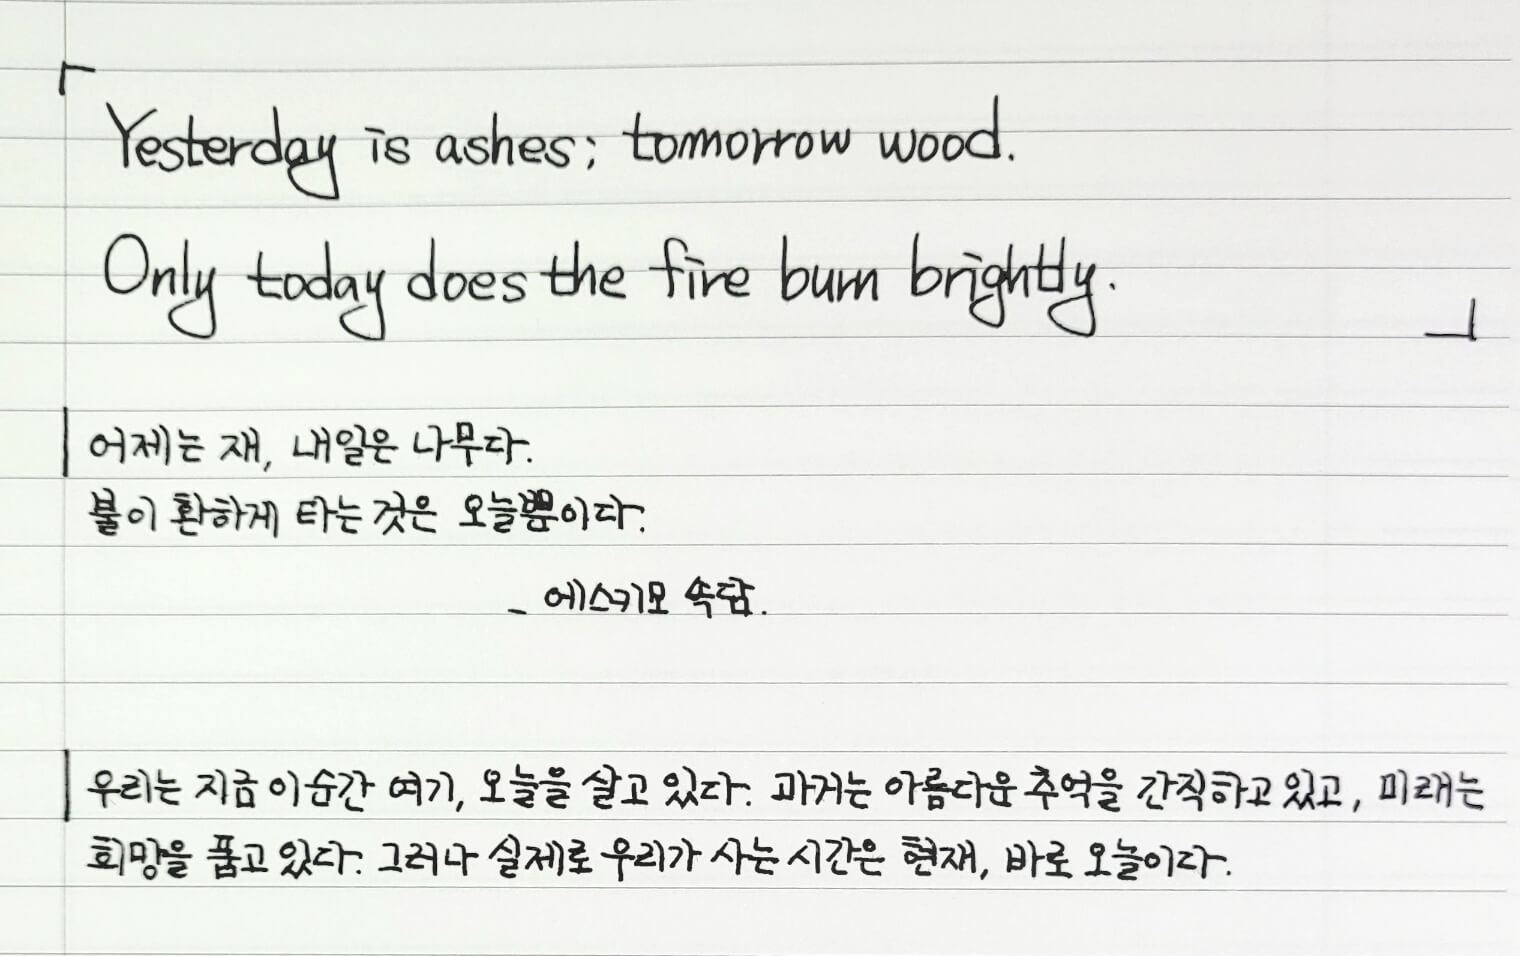 「Yesterday is ashes; tomorrow wood.
Only today does the fire burn brightly.」
어제는 재, 내일은 나무다.
불이 환하게 타는 것은 오늘뿐이다.
- 에스키모 속담.
우리는 지금 이 순간 여기, 오늘을 살고 있다. 과거는 아름다운 추억을 간직하고 있고, 미래는
희망을 품고 있다. 그러나 실제로 우리가 사는 시간은 현재, 바로 오늘이다.